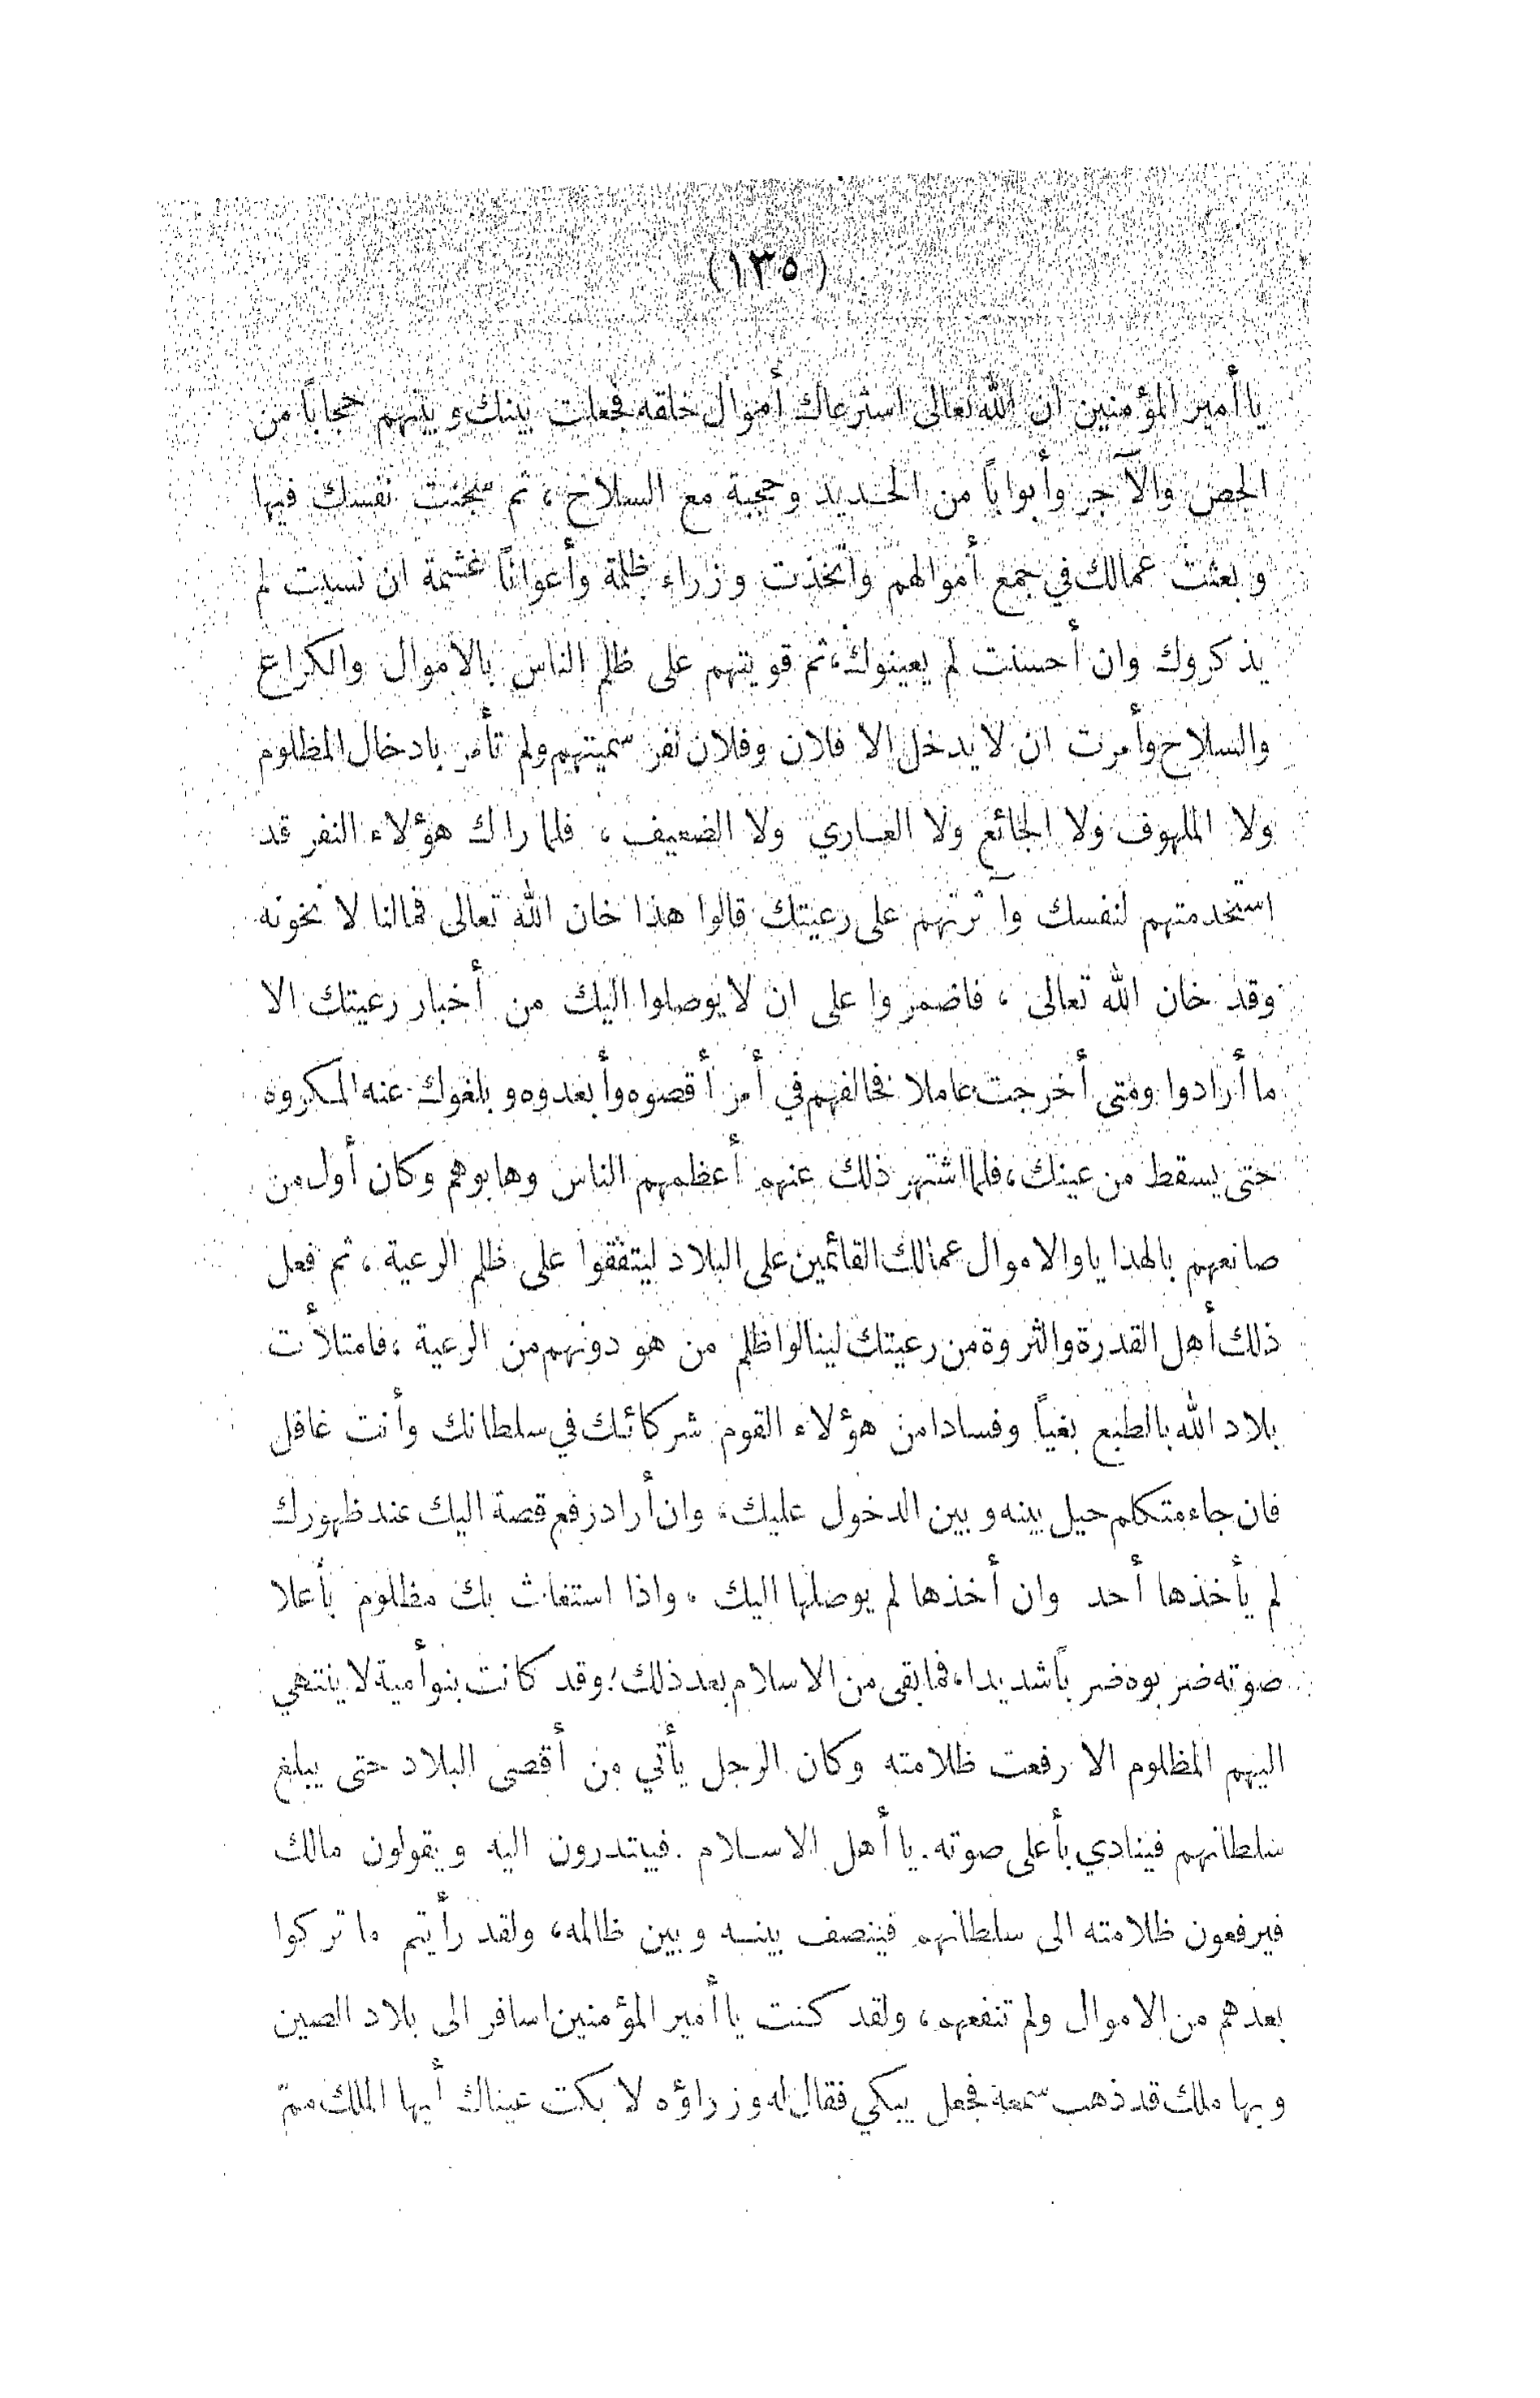 (١٣٥)
يا أمير المؤمنين ان الله تعالى استرعاك أموال خلقه فجعلت بينك وبينهم حجاباً من
الجص والآجر وأبواباً من الحديد وحجبة مع السلاح ، ثم سجنت نفسك فيها
وبعثت عمالك في جمع أموالهم واتخذت وزراء ظلمة وأعواناً غشمة ان نسيت لم
يذكروك وان أحسنت لم يعينوك، ثم قويتهم على ظلم الناس بالاموال والكراع
والسلاح وأمرت ان لا يدخل الا فلان وفلان نفر سميتهم ولم تأمر بادخال المظلوم
ولا الملهوف ولا الجائع ولا العاري ولا الضعيف ، فلما راك هؤلاء النفر قد
استخدمتهم لنفسك وآثرتهم على رعيتك قالوا هذا خان الله تعالى فمالنا لا نخونه
وقد خان الله تعالى ، فاضمروا على ان لا يوصلوا اليك من أخبار رعيتك الا
ما أرادوا ومتى أخرجت عاملا فخالفهم في أمر أقصوه وأبعدوه وبلغوك عنه المكروه
حتى يسقط من عينك، فلما اشتهر ذلك عنهم أعظمهم الناس وهابوهم وكان أول من
صانعهم بالهدايا والاموال عمالك القائمين على البلاد ليتفقوا على ظلم الرعية ، ثم فعل
ذلك أهل القدرة والثروة من رعيتك لينالوا ظلم من هو دونهم من الرعية ، فامتلأت
بلاد الله بالطبع بغياً وفسادا من هؤلاء القوم شركائك في سلطانك وأنت غافل
فان جاء متكلم حيل بينه وبين الدخول عليك، وان أراد رفع قصة اليك عند ظهورك
لم يأخذها أحد وان أخذها لم يوصلها اليك ، واذا استغاث بك مظلوم بأعلا
صوته ضربوه ضرباً شديدا، فما بقى من الاسلام بعد ذلك ؛ وقد كانت بنو أمية لا ينتهي
اليهم المظلوم الا رفعت ظلامته وكان الرجل يأتي من أقصى البلاد حتى يبلغ
سلطانهم فينادي بأعلى صوته . يا أهل الاسلام . فيبتدرون اليه ويقولون مالك
فيرفعون ظلامته الى سلطانهم فينصف بينه وبين ظالمه، ولقد رأيتم ما تركوا
بعدهم من الاموال ولم تنفعهم، ولقد كنت يا أمير المؤمنين اسافر الى بلاد الصين
وبها ملك قد ذهب سمعه فجعل يبكي فقال له وزراؤه لا بكت عيناك أيها الملك ممّ